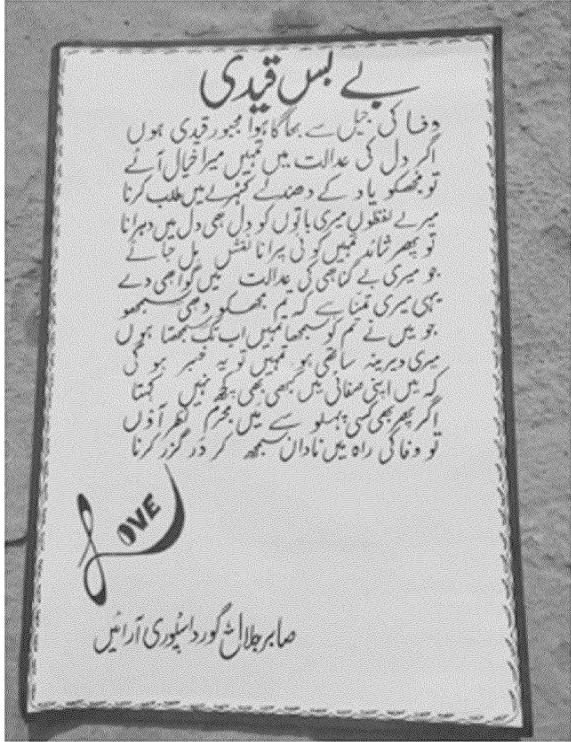 بے بس قیدی
وفا کی جیل سے بھاگا ہوا مجبور قیدی ہوں
اگر دل کی عدالت میں تمہیں میرا خیال آئے
تو مجھکو یاد کے دھندلے کٹہرے میں طلب کرنا
میرے لفظوں میری باتوں کو دل ہی دل میں دہرانا
تو پھر شائد تمہیں کوئی پرانا نقش مل جائے
جو میری بے گناہی کی عدالت میں گواہی دے
یہی میری تمنا ہے کہ تم مجھکو وہی سمجھو
جو میں نے تم کو سمجھا تمہیں اب تک سمجھتا ہوں
میری دیرینہ ساتھی ہو تمہیں تو یہ خبر ہو گی
کہ میں اپنی صفائی میں کبھی بھی کچھ نہیں کہتا
اگر پھر بھی کسی پہلو سے میں مجرم نظر آؤں
تو وفا کی راہ میں نادان سمجھ کر در گزر کرنا
LOVE
صابر جلال گورداسپوری آرائیں